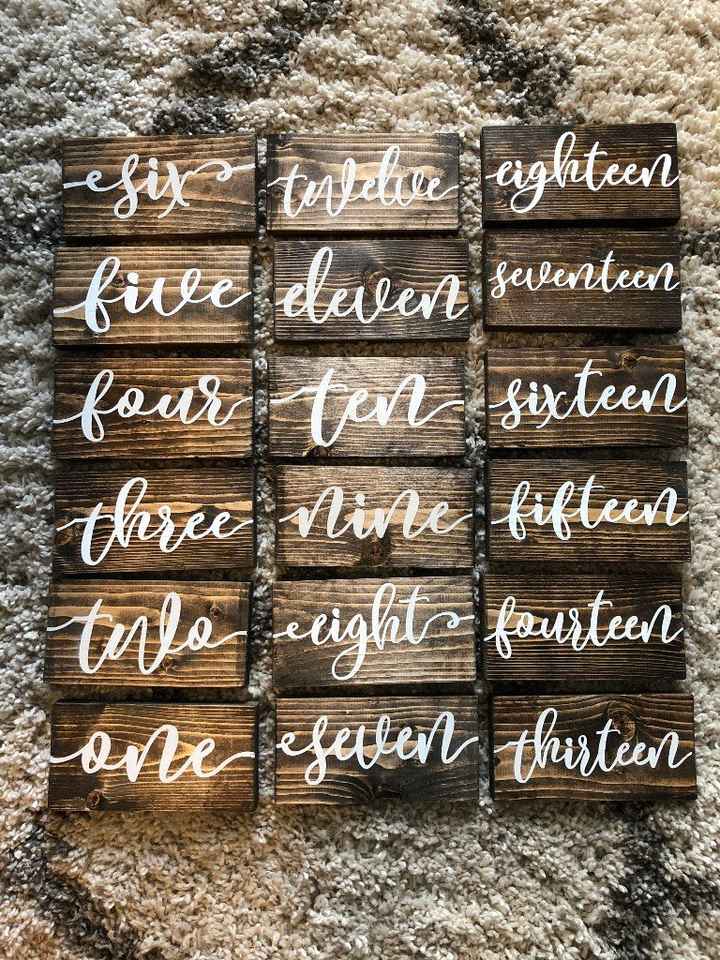 six
twelve
eighteen
five
eleven
seventeen
four
ten
sixteen
three
nine
fifteen
two
eight
fourteen
one
seven
thirteen